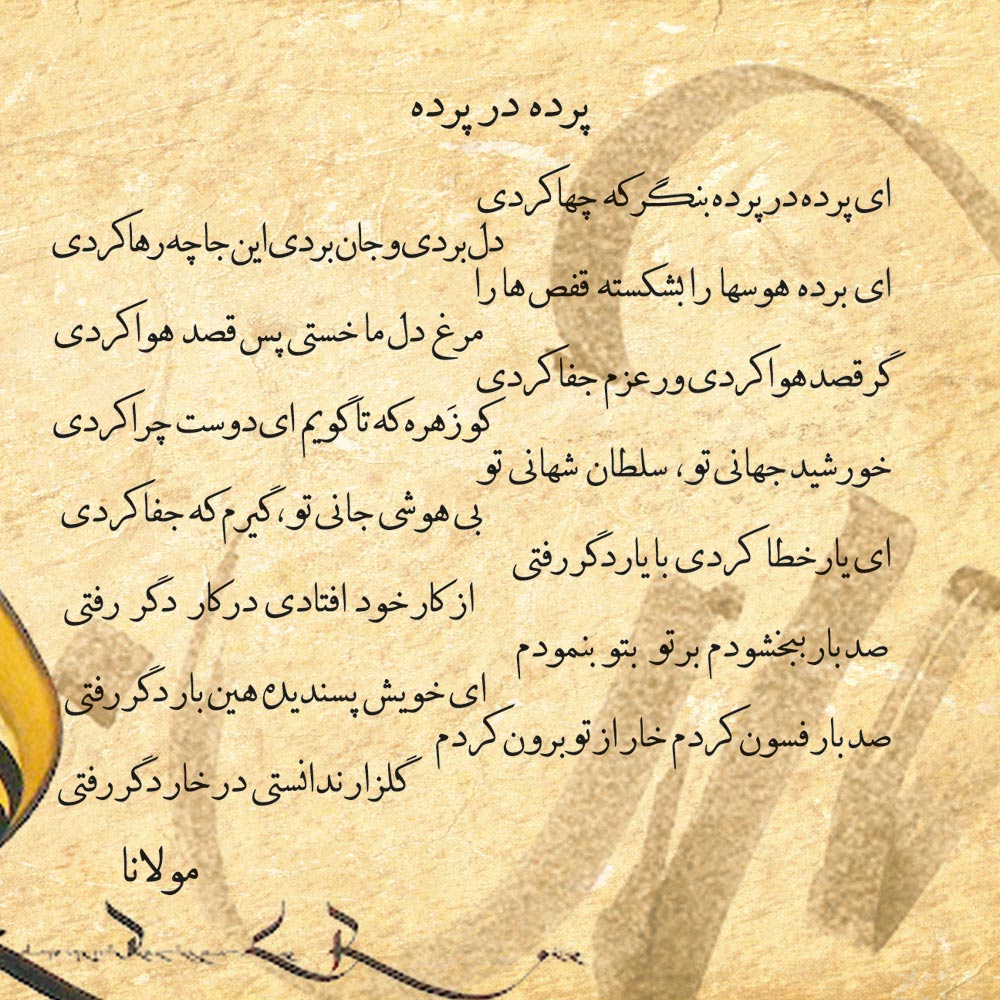 پرده در پرده
ای پرده در پرده بنگر که چها کردی
دل بردی و جان بردی این جا چه رها کردی
ای برده هوسها را بشکسته قفص ها را
مرغ دل ما خستی پس قصد هوا کردی
گر قصد هوا کردی ور عزم جفا کردی
کو زَهره که تا گویم ای دوست چرا کردی
خورشید جهانی تو، سلطان شهانی تو
بی هوشی جانی تو، گیرم که جفا کردی
ای یار خطا کردی با یار دگر رفتی
از کار خود افتادی در کار دگر رفتی
صد بار ببخشودم بر تو بتو بنمودم
ای خویش پسندیده هین بار دگر رفتی
صد بار فسون کردم خار از تو برون کردم
گلزار ندانستی در خار دگر رفتی
مولانا